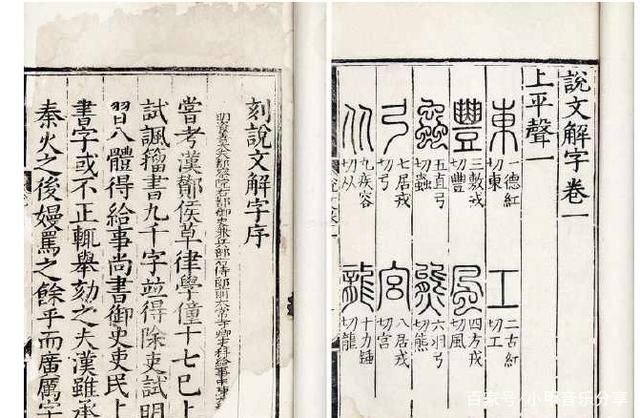 說文解字卷一
上平聲一
東 一德紅切東 工 二古紅切工
豐 三敷戎切豐 風 四方戎切風
蟲 五直弓切蟲 熊 六羽弓切熊
弓 七居戎切弓 宮 八居戎切宮
从 九疾容切从 龍 十力鍾切龍
刻說文解字序
嘗考漢酇侯草律學僮十七已上
試諷籀書九千字並得除吏試明
習八體得給事尚書御史吏民上
書字或不正輒舉劾之夫漢雖承
秦火之後嫚罵之餘乎而廣厲字
百家号/小听音乐分享